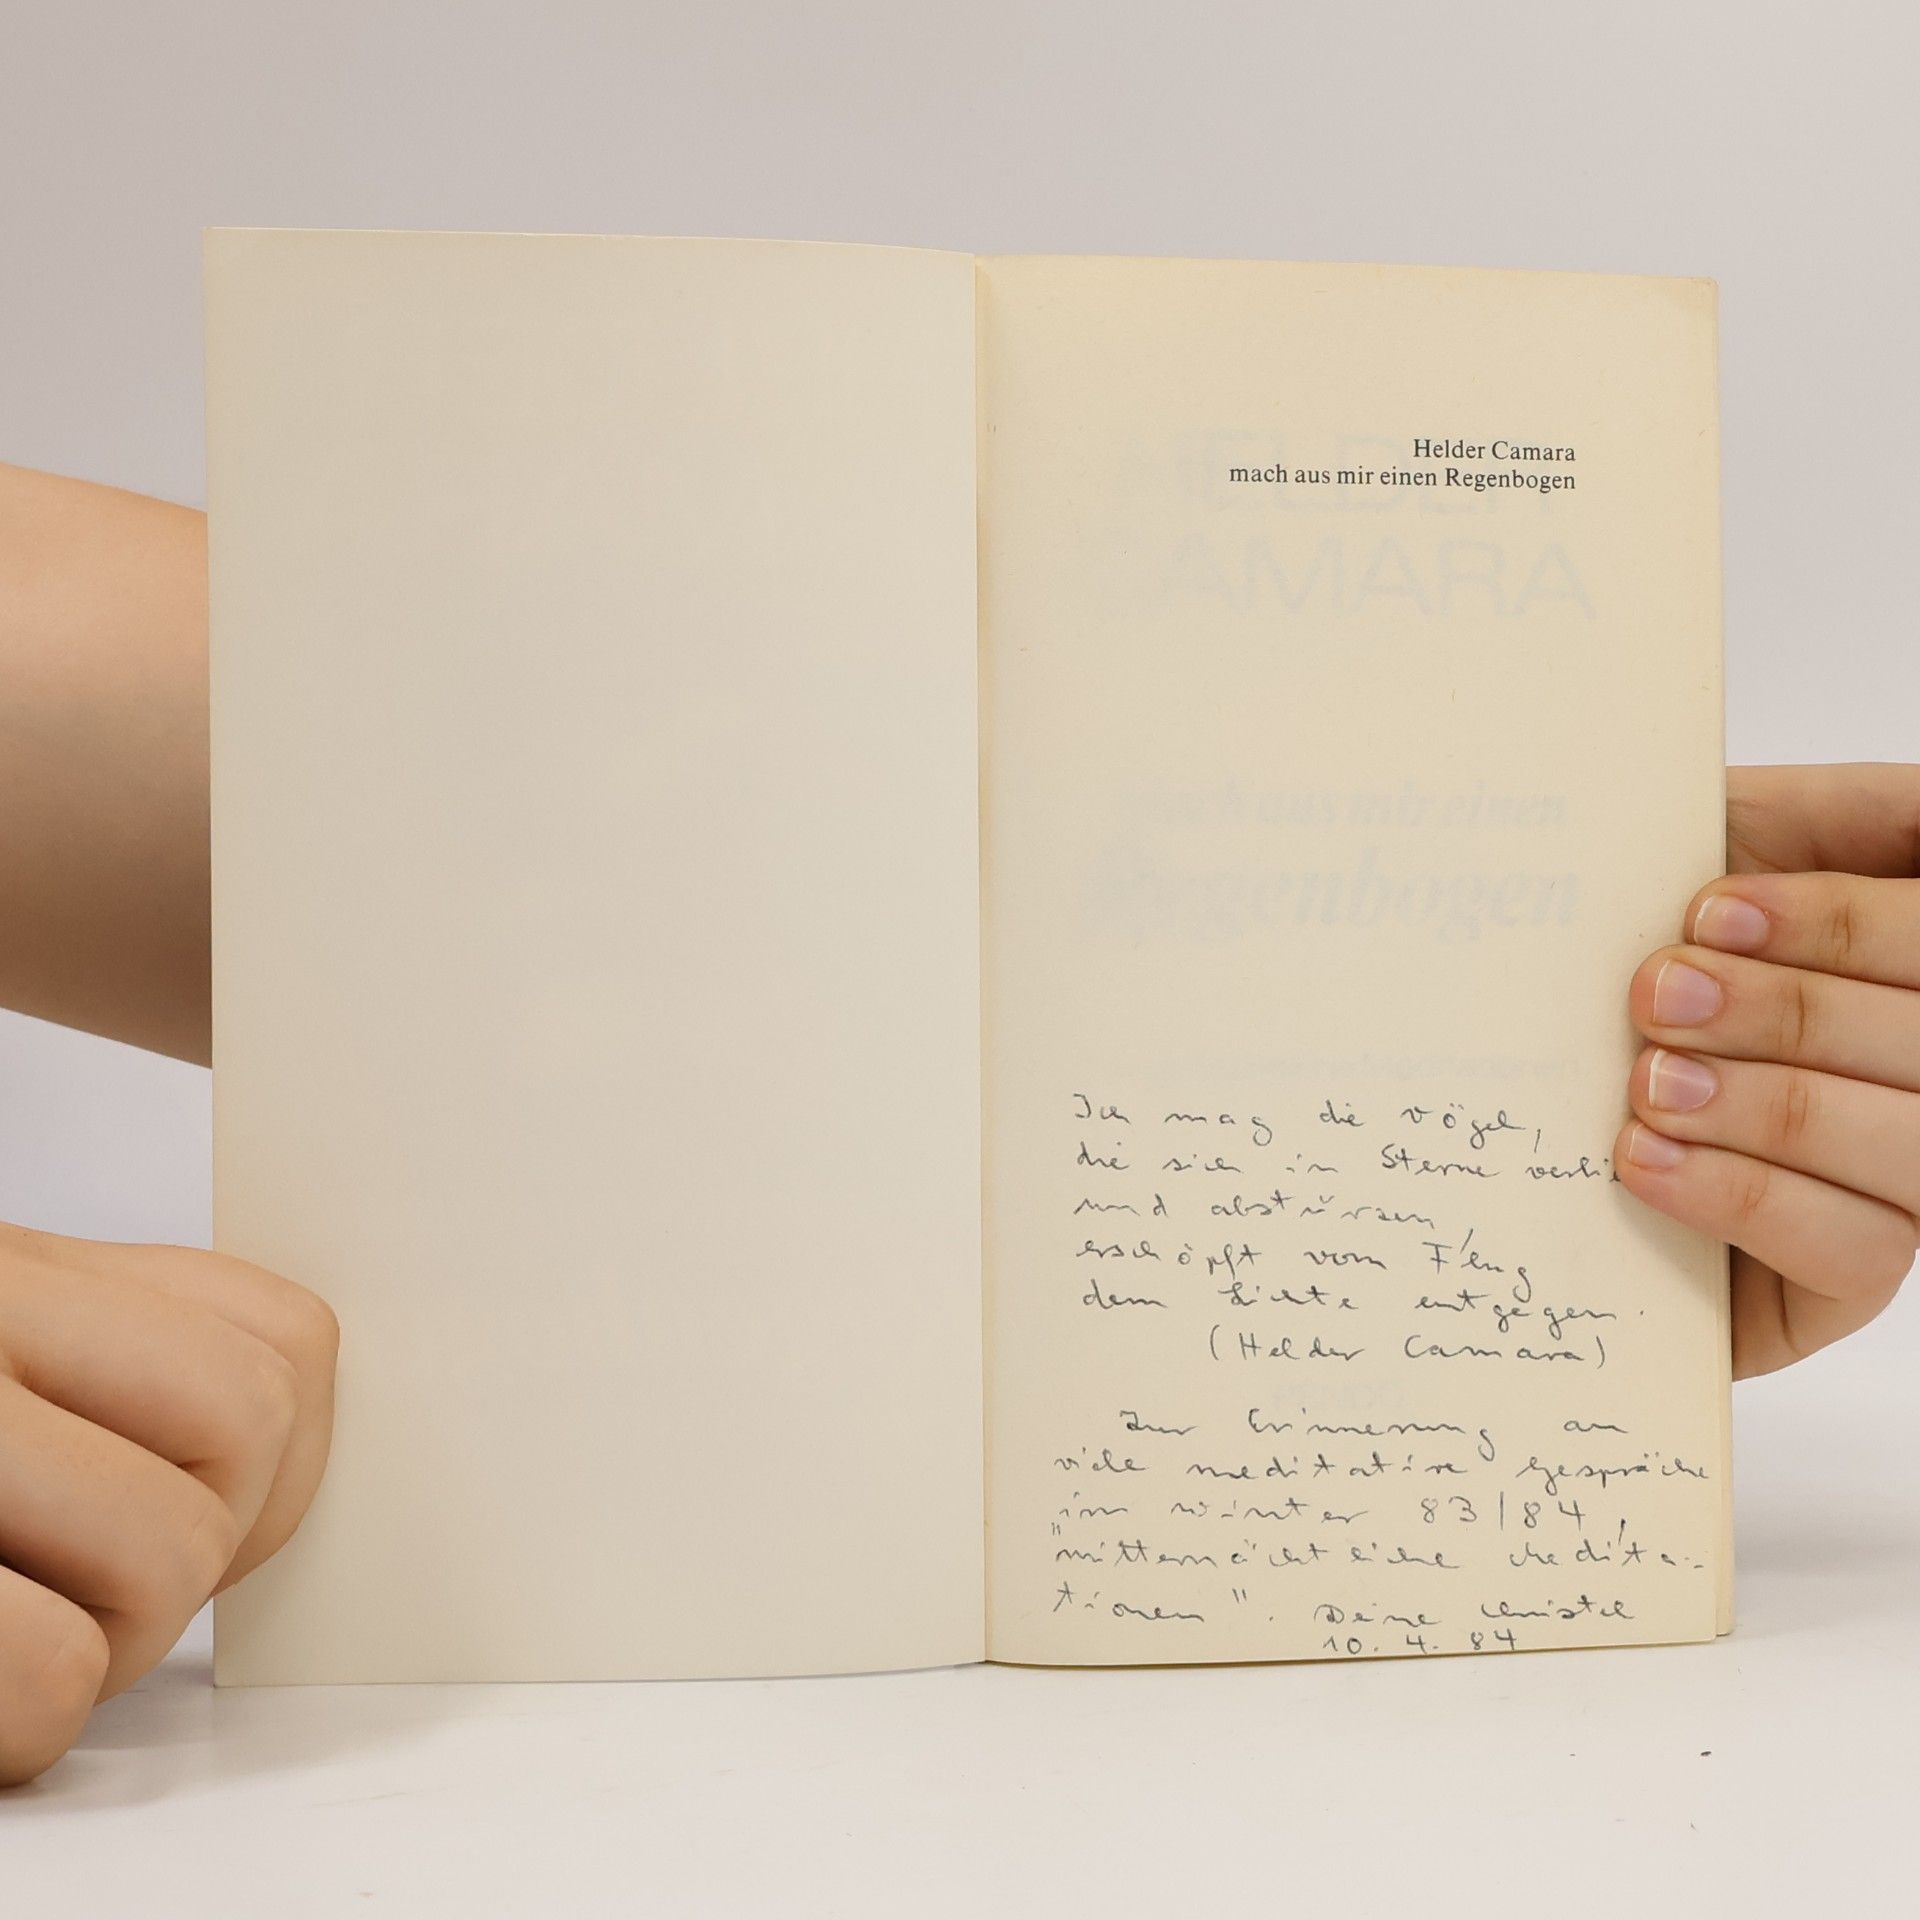 Helder Camara
mach aus mir einen Regenbogen
Ich mag die Vögel,
die sich in Sterne verlie
und abstürzen,
erschöpft vom Flug
dem Lichte entgegen.
(Helder Camara)
Zur Erinnerung an
viele meditative Gespräche
im Winter 83/84,
"mitternächtliche Medita-
tionen". Deine Christel
10. 4. 84